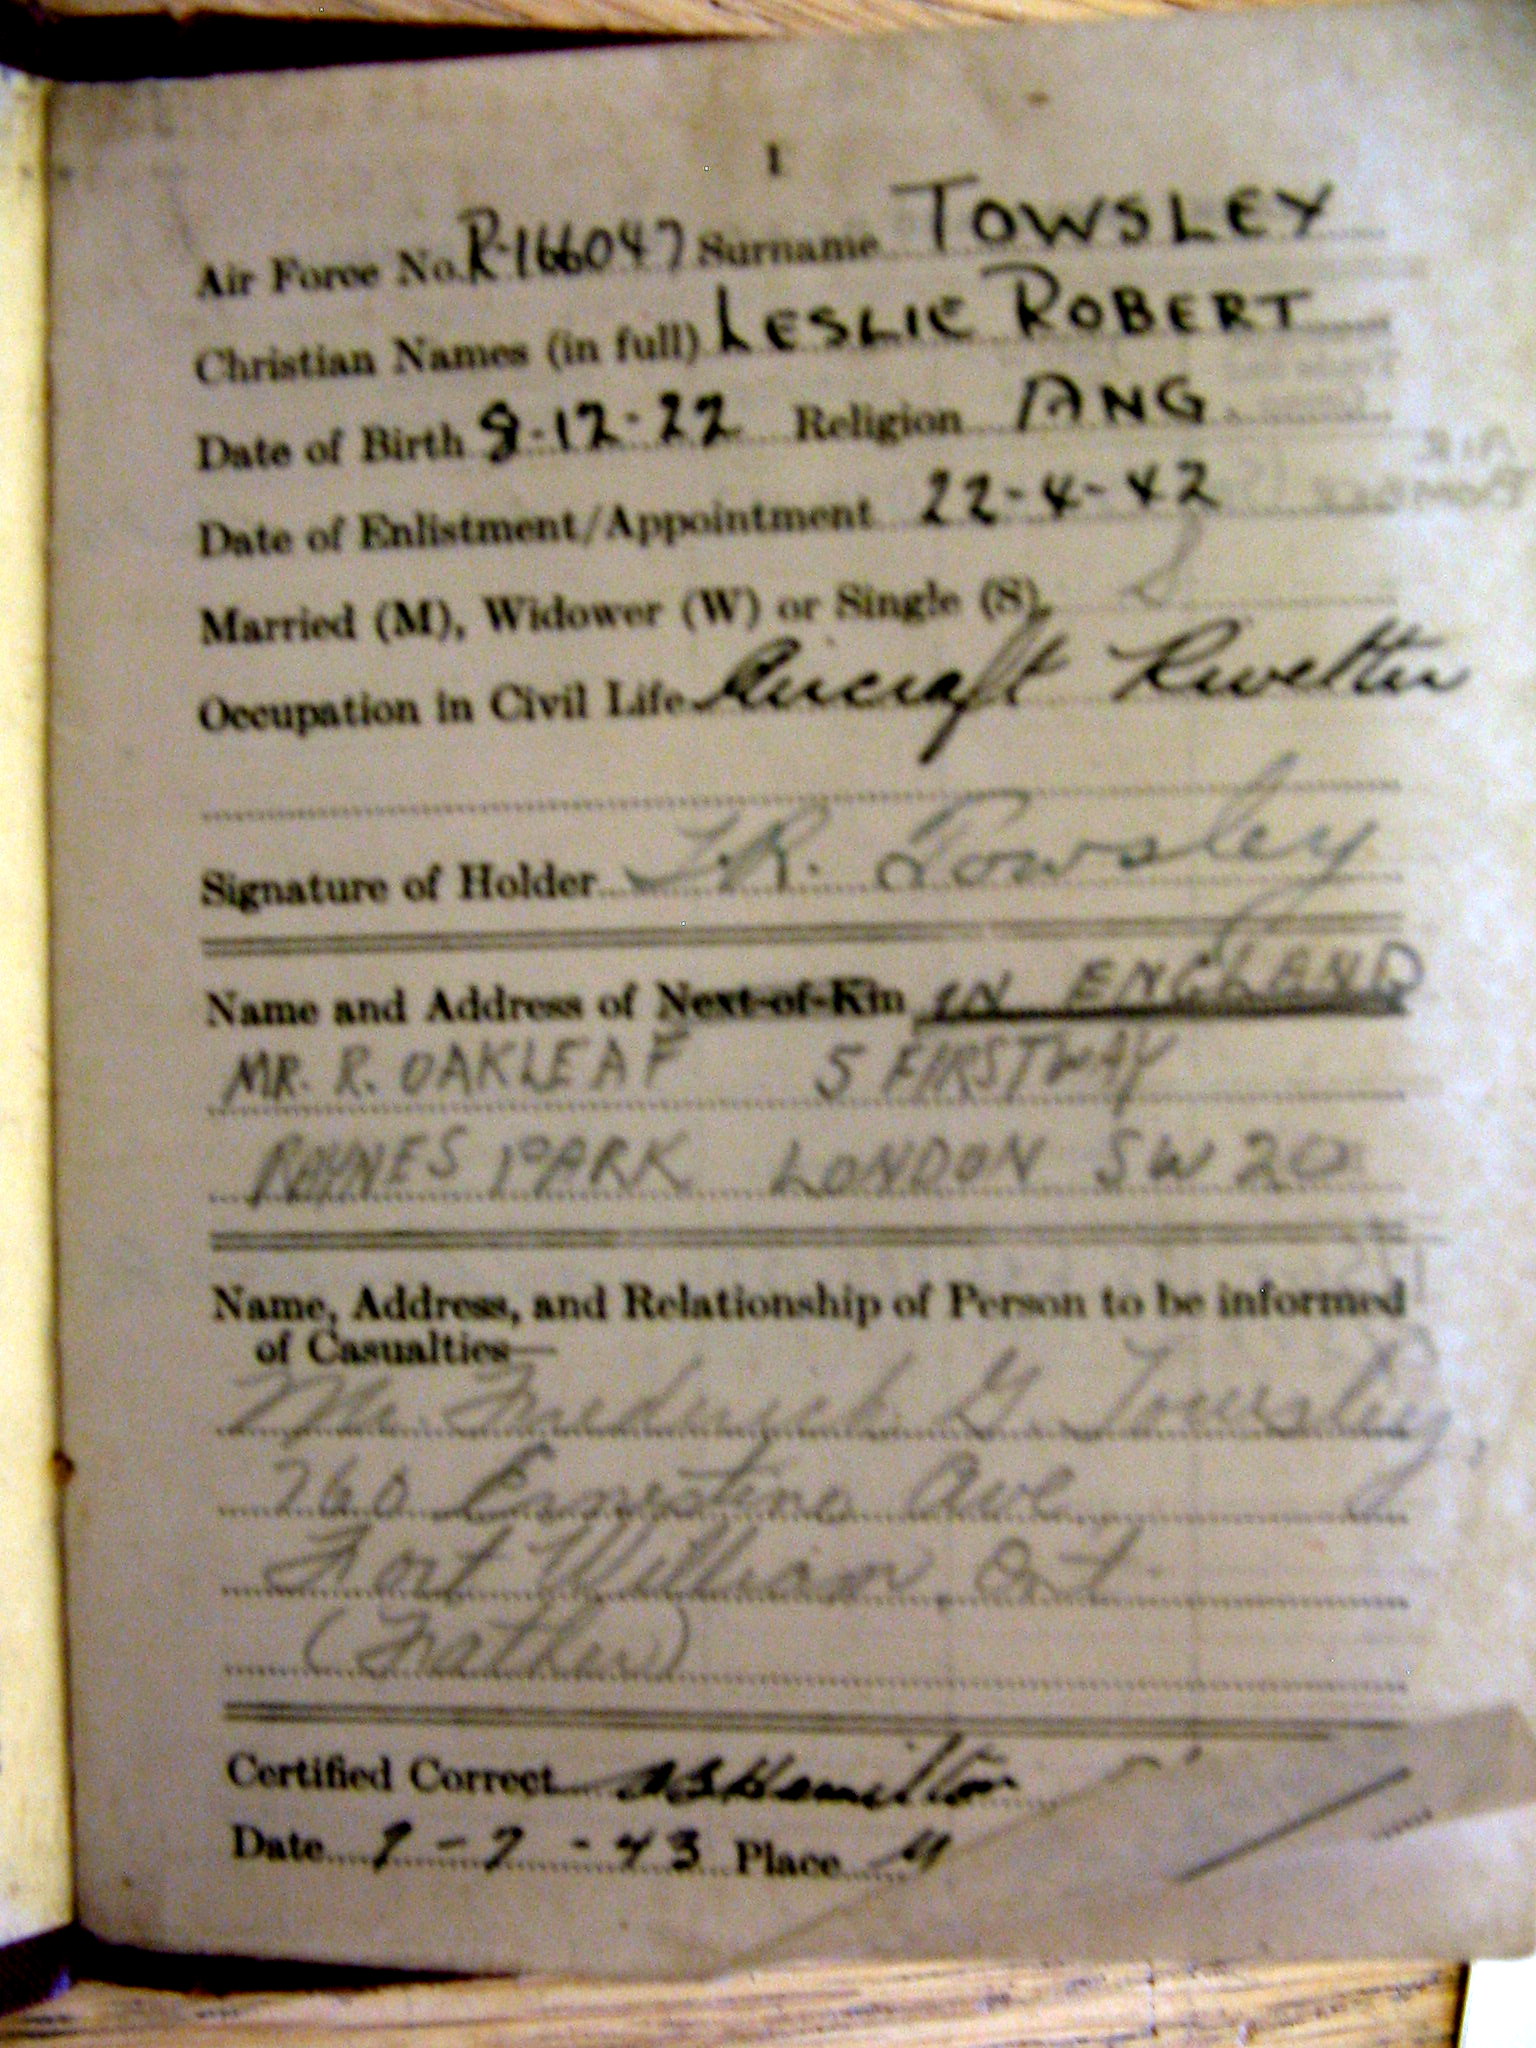 1
Air Force No. R-166047 Surname TOWSLEY
Christian Names (in full) LESLIE ROBERT
Date of Birth 8-12-22 Religion ANG.
Date of Enlistment/Appointment 22-4-42
Married (M), Widower (W) or Single (S). S
Occupation in Civil Life Aircraft Rivetter
Signature of Holder L.R. Towsley
Name and Address of Next-of-Kin IN ENGLAND
MR. R. OAKLEAF 5 FIRSTWAY
RAYNES PARK LONDON SW 20
Name, Address, and Relationship of Person to be informed
of Casualties—
Mr. Frederick G. Towsley,
260 Ernestine Ave
Fort William Ont.
(Father)
Certified Correct Hamilton
Date 7-7-43 Place